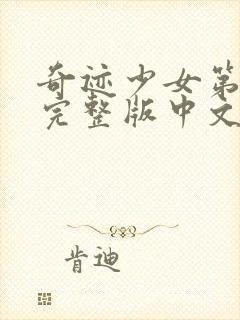 奇迹少女第
完整版中文
肯迪